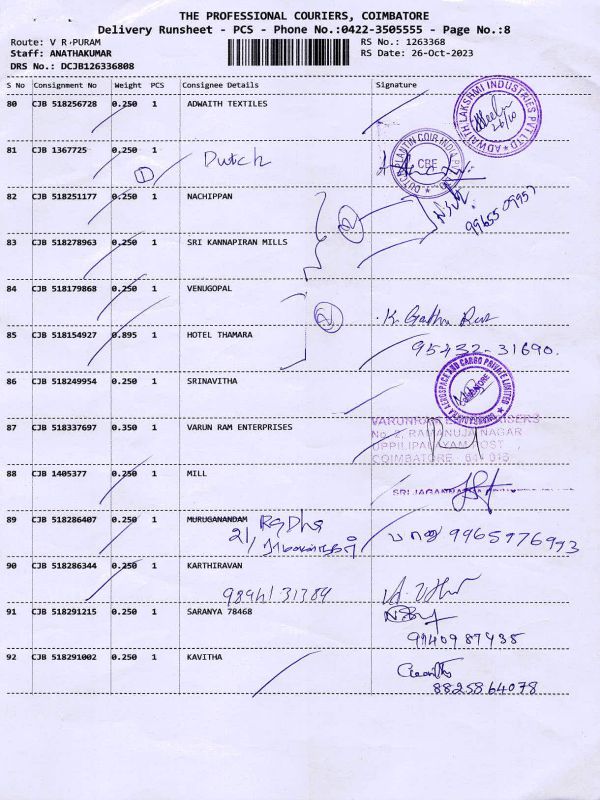 THE PROFESSIONAL COURIERS, COIMBATORE
Delivery Runsheet - PCS - Phone No.:0422-3505555 - Page No.:8
Route: V R PURAM RS No.: 1263368
Staff: ANATHAKUMAR RS Date: 26-Oct-2023
DRS No.: DCJB126336808
S No Consignment No Weight PCS Consignee Details Signature
80 CJB 518256728 0.250 1 ADWAITH TEXTILES
ADWAITH LAKSHMI INDUSTRIES PVT LTD
26/10
81 CJB 1367725 0.250 1 Dutch
DUTCH PLANTIN COIR INDIA PVT
CBE
1
82 CJB 518251177 0.250 1 NACHIPPAN
2
99655 09957
83 CJB 518278963 0.250 1 SRI KANNAPIRAN MILLS
84 CJB 518179868 0.250 1 VENUGOPAL
2 K.
85 CJB 518154927 0.895 1 HOTEL THAMARA
95432-31690.
86 CJB 518249954 0.250 1 SRINAVITHA
AEROSPACE AND CARGO PRIVATE LIMITED
87 CJB 518337697 0.350 1 VARUN RAM ENTERPRISES
VARUNRAM ENTERPRISERS
No. 2, RAMANUJA NAGAR
UPPILIPALAYAM POST
COIMBATORE - 641 015
88 CJB 1405377 0.250 1 MILL
SRI JAGANNATHA
89 CJB 518286407 0.250 1 MURUGANANDAM
21/
9965976993
90 CJB 518286344 0.250 1 KARTHIRAVAN
98941 31384
91 CJB 518291215 0.250 1 SARANYA 78468
9940987435
92 CJB 518291002 0.250 1 KAVITHA
8825864078